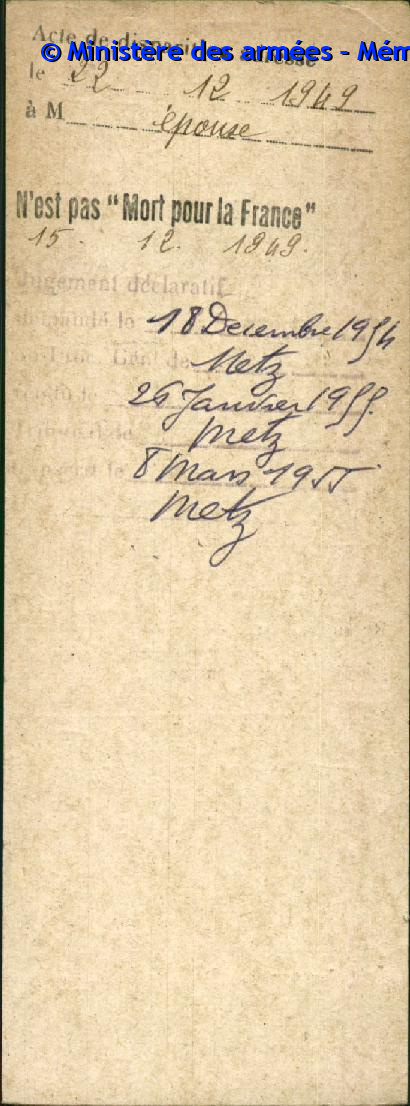 Acte de disparition adressé
© Ministère des armées - Mém
le 22 12 1949
à M épouse
N'est pas "Mort pour la France"
15. 12. 1949.
Jugement déclaratif
demandé le 18 Decembre 1954
Metz
26 Janvier 1955.
Tribunal de Metz
le 8 Mars 1955
Metz